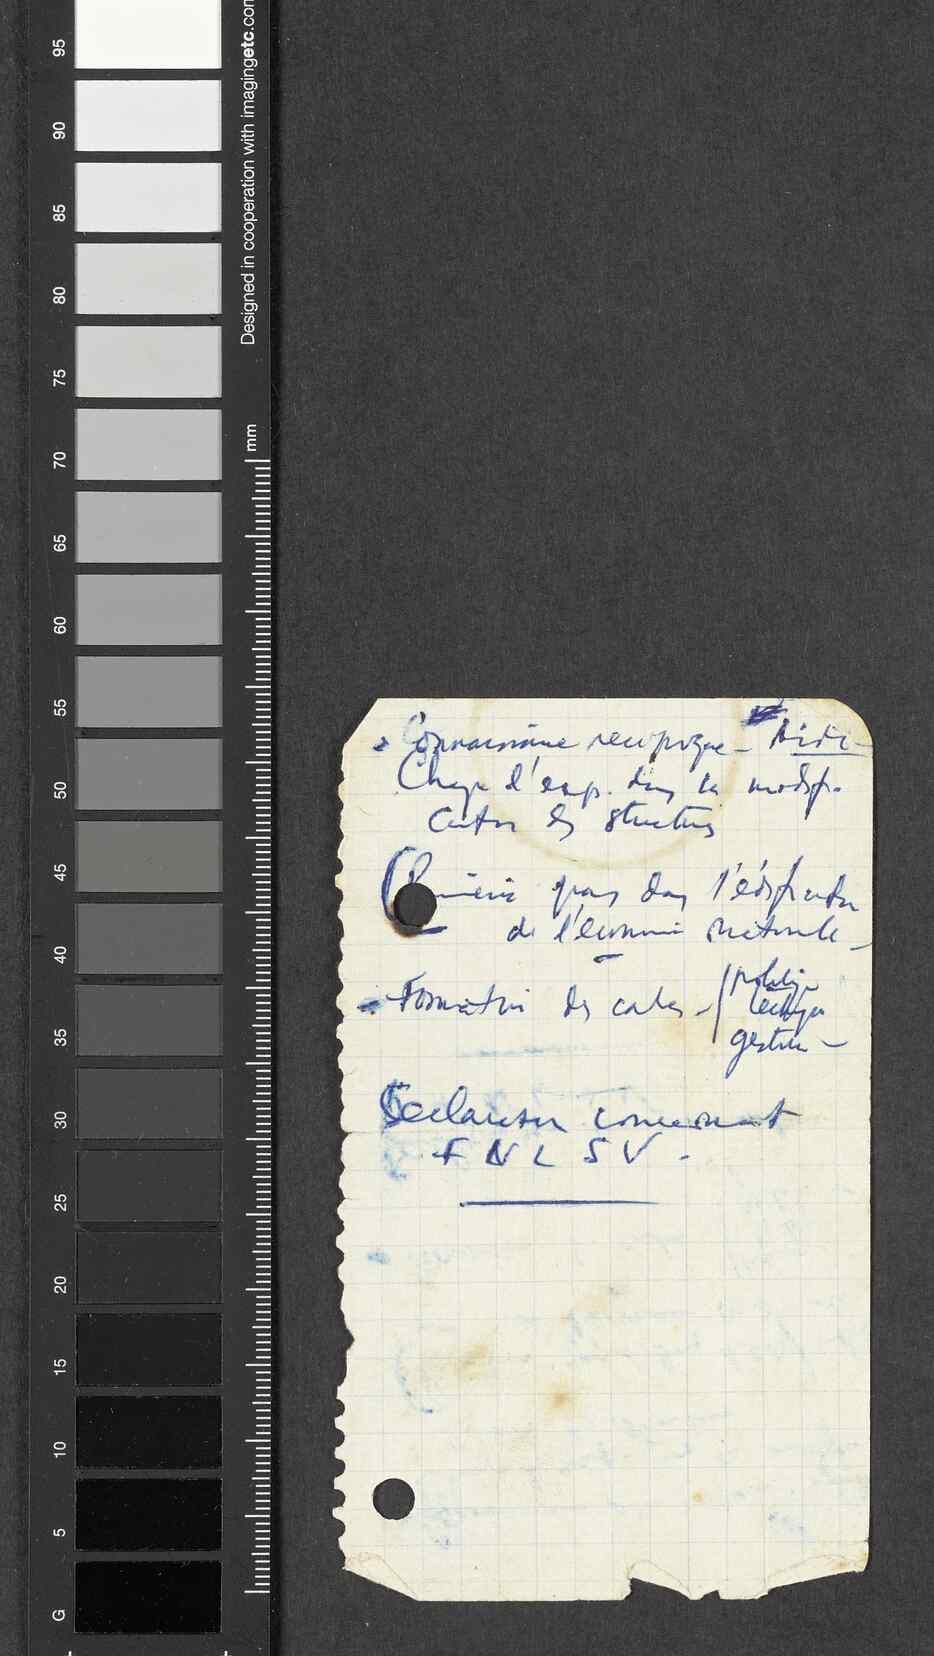 95
90
85
80
75
70
65
60
55
50
45
40
35
30
25
20
15
10
5
G
Designed in cooperation with imagingetc.com
mm
Connaissance reciproque -
Change d'exp. dans la modifi-
cation des structures
dans l'édification
de l'économie nationale -
- Formation des cadres - politique
technique
gestion -
Declaration concernant
F N L S V .